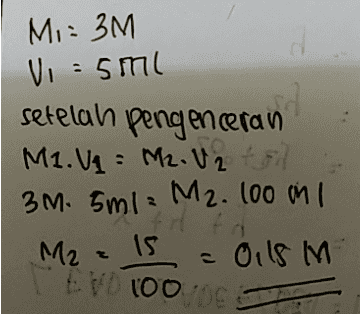 M1 = 3M
V1 = 5 ml
setelah pengenceran
M1. V1 = M2. V2
3M. 5ml = M2. 100 ml
M2 = 15/100 = 0,15 M